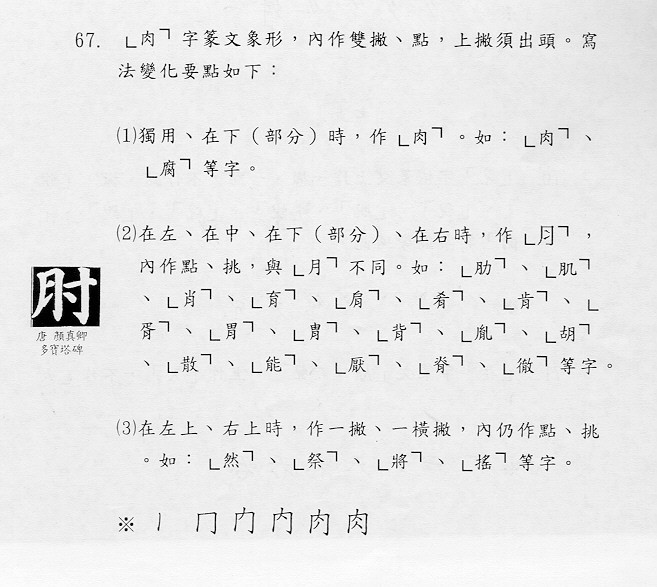 67. ﹂肉﹁字篆文象形，內作雙撇、點，上撇須出頭。寫
法變化要點如下：
⑴獨用、在下（部分）時，作﹂肉﹁。如：﹂肉﹁、
﹂腐﹁等字。
⑵在左、在中、在下（部分）、在右時，作﹂⺼﹁，
內作點、挑，與﹂月﹁不同。如：﹂肋﹁、﹂肌﹁
、﹂肖﹁、﹂育﹁、﹂肩﹁、﹂肴﹁、﹂肯﹁、﹂
胥﹁、﹂胃﹁、﹂冑﹁、﹂背﹁、﹂胤﹁、﹂胡﹁
、﹂散﹁、﹂能﹁、﹂厭﹁、﹂脊﹁、﹂徹﹁等字。
肘
唐 顏真卿
多寶塔碑
⑶在左上、右上時，作一撇、一橫撇，內仍作點、挑
。如：﹂然﹁、﹂祭﹁、﹂將﹁、﹂搖﹁等字。
※ 丨 冂 内 肉